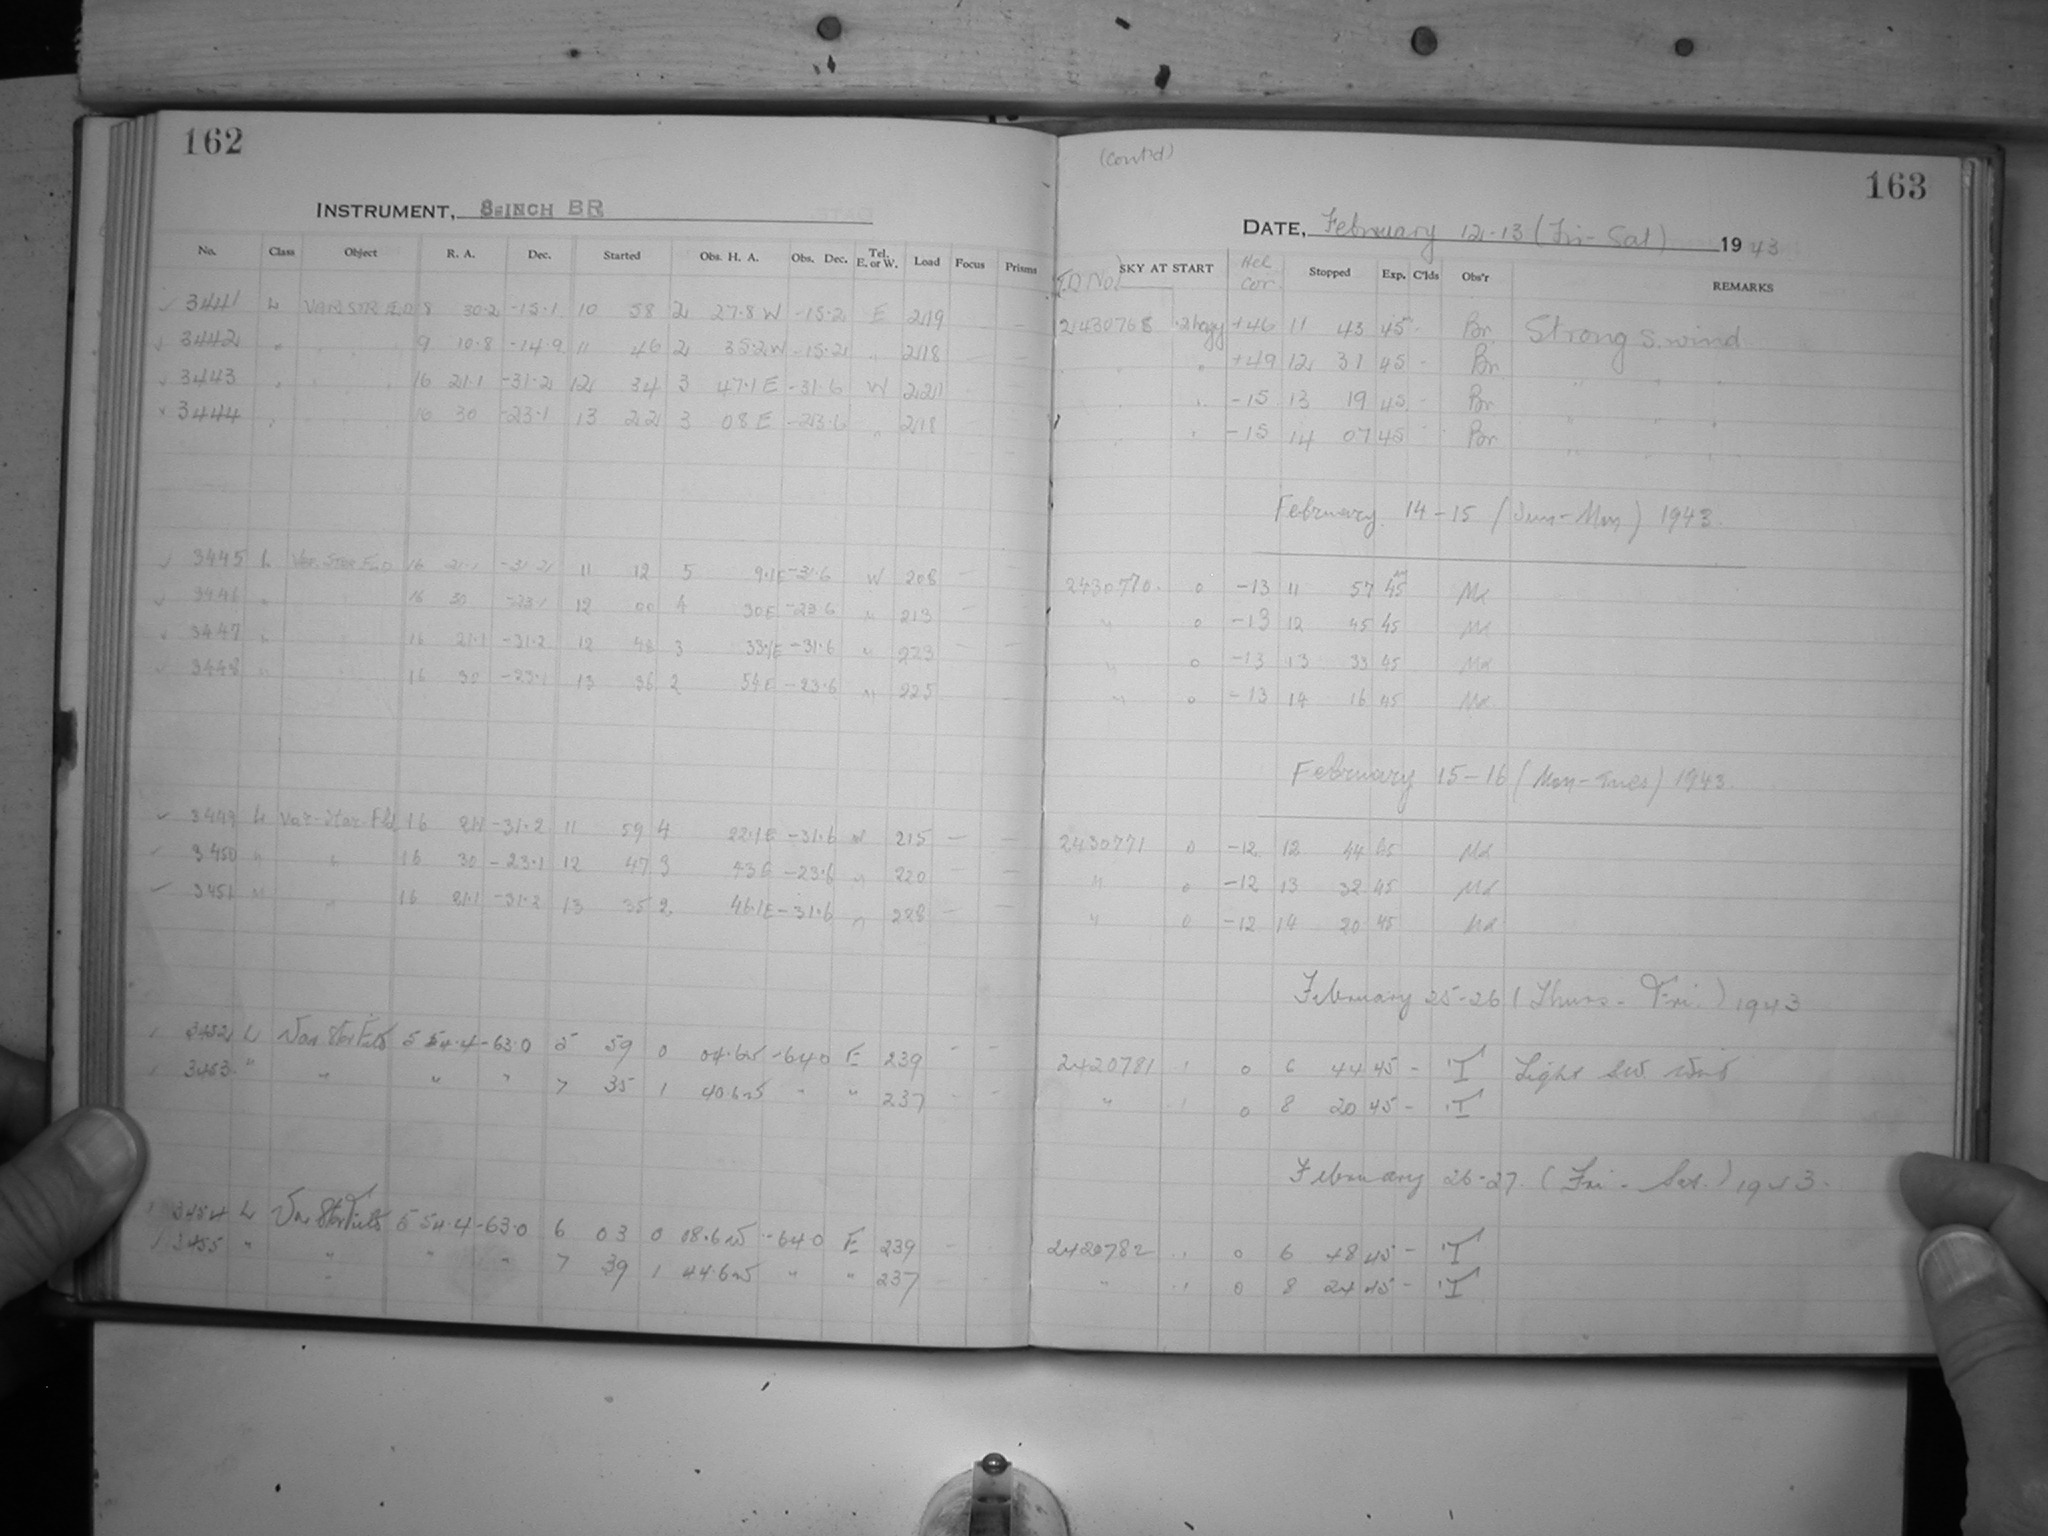 162
INSTRUMENT, 8-INCH BR
No. Class Object R. A. Dec. Started Obs. H. A. Obs. Dec. Tel. E. or W. Load Focus Prisms
3441 L VAR.STR.FLD 8 30.2 -15.1 10 58 2 27.8 W -15.2 E 219 — —
3442 " " " 9 10.8 -14.9 11 46 2 35.2 W -15.2 " 218 — —
3443 " " " 16 21.1 -31.2 12 34 3 47.1 E -31.6 W 221 — —
3444 " " " 16 30 -23.1 13 22 3 08 E -23.6 " 218
3445 L Var. Star Fld 16 21.1 -31.2 11 12 5 9.1E -31.6 W 208 — —
3446 " " 16 30 -23.1 12 00 4 30E -23.6 " 213 —
3447 " " 16 21.1 -31.2 12 48 3 33.1E -31.6 " 223 —
3448 " " 16 30 -23.1 13 36 2 54E -23.6 " 225 —
3449 L Var. Star Fld 16 21.1 -31.2 11 59 4 22.1E -31.6 W 215 — —
3450 " " 16 30 -23.1 12 47 3 43E -23.6 " 220 — —
3451 " " 16 21.1 -31.2 13 35 2 46.1E -31.6 " 228 — —
3452 L Var Star Field 5 54.4 -63.0 5 59 0 04.6W -64.0 E 239 - -
3453 " " " " 7 35 1 40.6W " " 237 - -
3454 L Var Star Field 5 54.4 -63.0 6 03 0 08.6W -64.0 E 239 -
3455 " " " " 7 39 1 44.6W " " 237
(Cont'd)
163
DATE, February 12-13 (Fri-Sat) 1943
J.D. No. SKY AT START Hel. Cor. Stopped Exp. C'lds Obs'r REMARKS
2430768 2 hazy +46 11 43 45 - Br. Strong S. wind
" " +49 12 31 45 - Br " "
" " -15 13 19 45 - Br " "
" " -15 14 07 45 Br " " "
February 14-15 (Sun-Mon) 1943.
2430770. 0 -13 11 57 45 Md
" 0 -13 12 45 45 Md
" 0 -13 13 33 45 Md
" 0 -13 14 16 45 Md
February 15-16 (Mon-Tues) 1943.
2430771 0 -12 12 44 45 Md
" 0 -12 13 32 45 Md
" 0 -12 14 20 45 Md
February 25-26 (Thurs - Fri.) 1943
2420781 1 0 6 44 45 - T Light SW. Wind
" 1 0 8 20 45 - T
February 26-27. (Fri - Sat.) 1943.
2420782 1 0 6 48 45 - T
" 1 0 8 24 45 - T